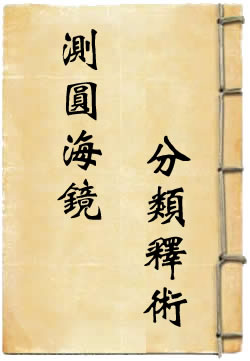 測圓海鏡
分類釋術